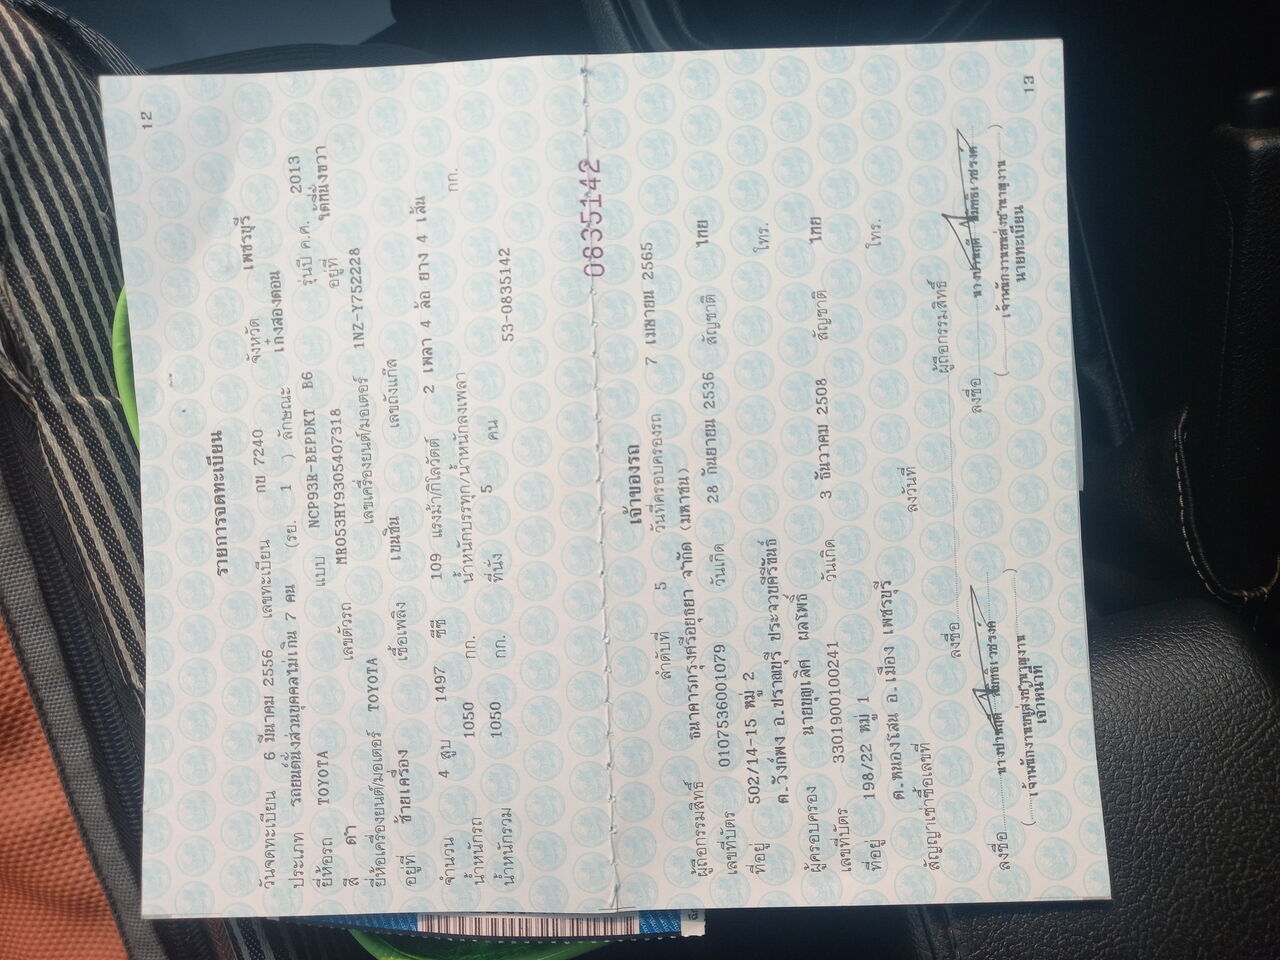 12
รายการจดทะเบียน
วันจดทะเบียน 6 มีนาคม 2556 เลขทะเบียน กบ 7240 จังหวัด เพชรบุรี
ประเภท รถยนต์นั่งส่วนบุคคลไม่เกิน 7 คน (รย. 1 ) ลักษณะ เก๋งสองตอน
ยี่ห้อรถ TOYOTA แบบ NCP93R-BEPDKT B6 รุ่นปี ค.ศ. 2013
สี ดำ เลขตัวรถ MR053HY9305407318 อยู่ที่ ใต้ที่นั่งขวา
ยี่ห้อเครื่องยนต์/มอเตอร์ TOYOTA เลขเครื่องยนต์/มอเตอร์ 1NZ-Y752228
อยู่ที่ ซ้ายเครื่อง เชื้อเพลิง เบนซิน เลขถังแก๊ส
จำนวน 4 สูบ 1497 ซีซี 109 แรงม้า/กิโลวัตต์ 2 เพลา 4 ล้อ ยาง 4 เส้น
น้ำหนักรถ 1050 กก. น้ำหนักบรรทุก/น้ำหนักลงเพลา กก.
น้ำหนักรวม 1050 กก. ที่นั่ง 5 คน 53-0835142
0835142
เจ้าของรถ
ลำดับที่ 5 วันที่ครอบครองรถ 7 เมษายน 2565
ผู้ถือกรรมสิทธิ์ ธนาคารกรุงศรีอยุธยา จำกัด (มหาชน)
เลขที่บัตร 0107536001079 วันเกิด 28 กันยายน 2536 สัญชาติ ไทย
ที่อยู่ 502/14-15 หมู่ 2 โทร.
ต.วังก์พง อ.ปราณบุรี ประจวบคีรีขันธ์
ผู้ครอบครอง นายบุญเลิศ ผลโพธิ์
เลขที่บัตร 3301900100241 วันเกิด 3 ธันวาคม 2508 สัญชาติ ไทย
ที่อยู่ 198/22 หมู่ 1 โทร.
ต.หนองโสน อ.เมือง เพชรบุรี
สัญญาเช่าซื้อเลขที่ ลงวันที่
ลงชื่อ ผู้ถือกรรมสิทธิ์
ลงชื่อ ลงชื่อ
เจ้าพนักงานขนส่งชำนาญงาน เจ้าพนักงานขนส่งชำนาญงาน
เจ้าหน้าที่ นายทะเบียน
13